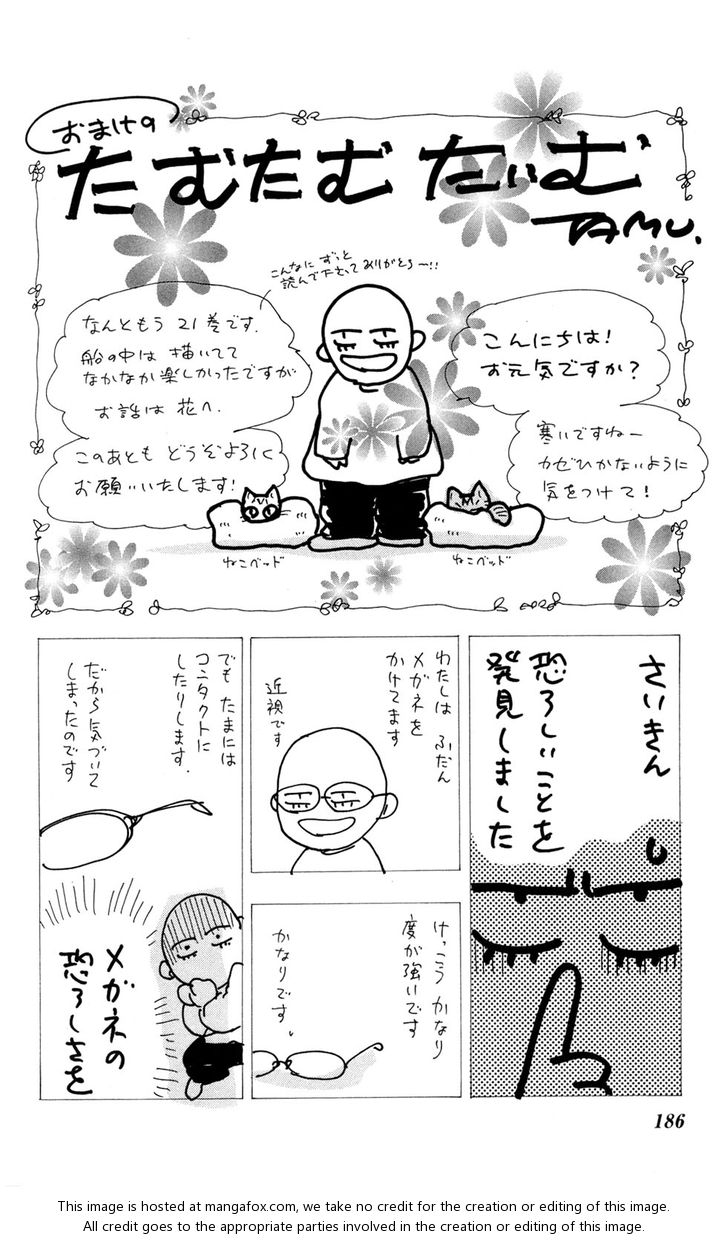 おまけの
たむたむたいむ
TAMU.
こんなに ずっと
読んで下さって ありがとう〜!!
こんにちは!
お元気ですか?
寒いですねー
カゼひかないように
気をつけて!
なんともう 21巻です.
船の中は 描いてて
なかなか楽しかったですが
お話は 花へ.
このあとも どうぞよろしく
お願いいたします!
ねこベッド
ねこベッド
さいきん
恐ろしいことを
発見しました
わたしは ふだん
メガネを
かけてます
近視です
けっこう かなり
度が強いです
かなりです。
でも たまには
コンタクトに
したりします.
だから気づいて
しまったのです
メガネの
恐ろしさを
186
This image is hosted at mangafox.com, we take no credit for the creation or editing of this image.
All credit goes to the appropriate parties involved in the creation or editing of this image.